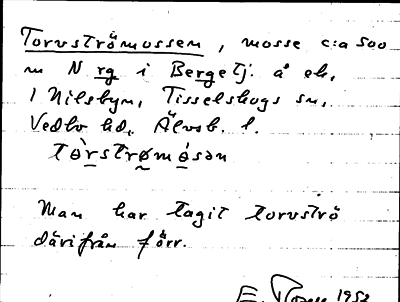 Torvströmossen, mosse c:a 500
m N rg i Bergetj. å eh.
1 Nilsbyn, Tisselskogs sn,
Vedbo hd, Älvsb. l.
tòrstrømósan
Man har tagit torvströ
därifrån förr.
E. 1952